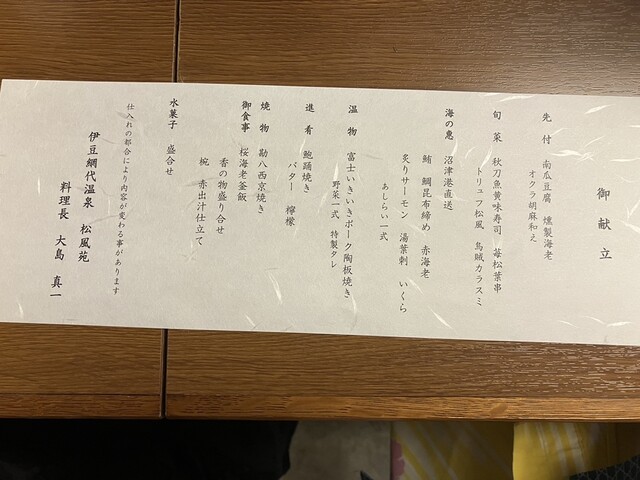 御献立
先付　南瓜豆腐　燻製海老
オクラ胡麻和え
旬菜　秋刀魚黄味寿司　苺松葉串
トリュフ松風　烏賊カラスミ
海の恵　沼津港直送
鮪　鯛昆布締め　赤海老
炙りサーモン　湯葉刺　いくら
あしらい一式
温物　富士いきいきポーク陶板焼き
野菜一式　特製タレ
進肴　鮑踊焼き
バター　檸檬
焼物　勘八西京焼き
御食事　桜海老釜飯
香の物盛り合せ
椀　赤出汁仕立て
水菓子　盛合せ
仕入れの都合により内容が変わる事があります
伊豆網代温泉　松風苑
料理長　大島　真一